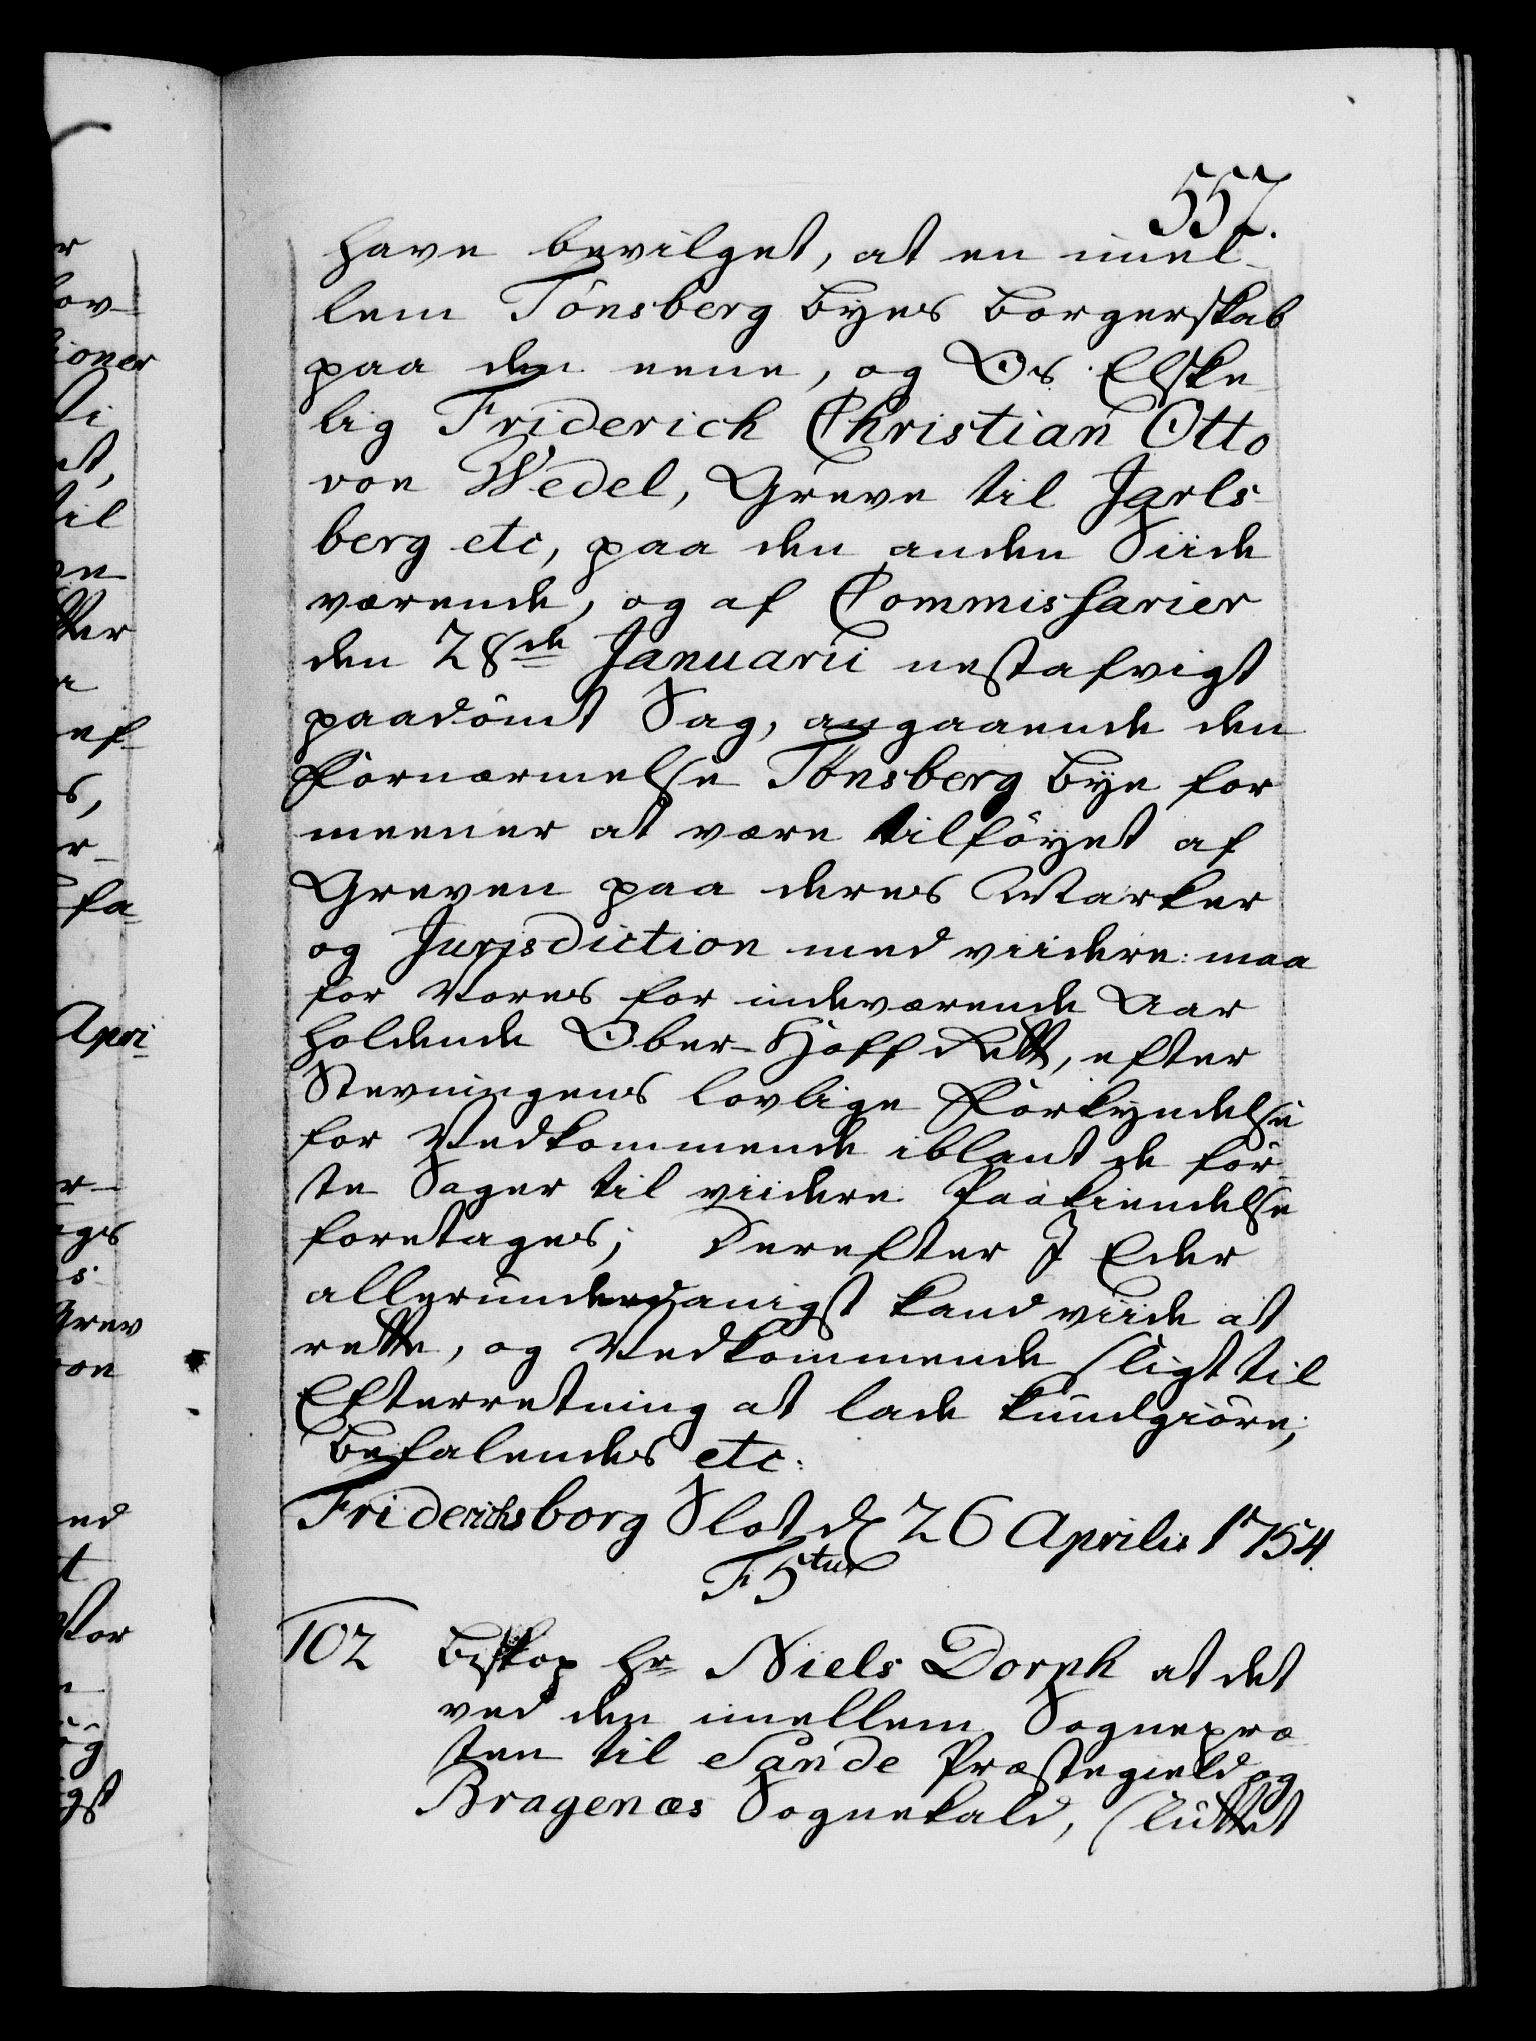 557.
have bevilget, at en imel-
lem Tönsberg Byes Borgerskab
paa den eene, og Os Elske-
lig Friderich Christian Otto
von Wedel, Greve til Jarls-
berg etc, paa den anden Siide
værende, og af Commissarier
den 28de Januarii nestafvigt
paadömt Sag, angaaende den
Fornærmelse Tönsberg Bye for
meener at være tilföyet af
Greven paa deres Marker
og Jurisdiction med viidere: maa
for Vores for indeværende Aar
holdende Ober-Hoff Rett, efter
Stevningens lovlige Forkyndelse
for Vedkommende iblant de för-
ste Sager til viidere Paakiendelse
foretages; Derefter I Eder
allerunderdanigst kand viide at
rette, og Vedkommende sligt til
Efterretning at lade kundgiöre;
Befalendes etc:
Friderichsborg Slot d 26 Aprilis 1754.
F 5tus
102 Biskop Hr Niels Dorph at det
ved den imellem Sognepræ-
sten til Sande Præstegield og
Bragenæs Sognekald, sluttet
r
lov-
tioner
et,
til
en
tter
a
ef-
s,
r-
fa-
Apri-
r-
ges
s.
Grev
von
nd
t
og
igst